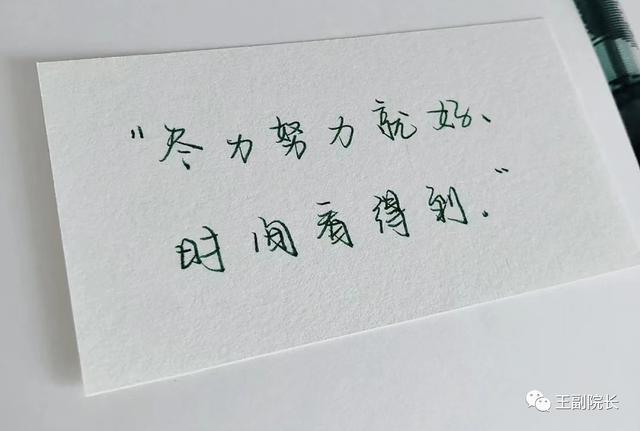 "尽力努力就好、
时间看得到."
王副院长